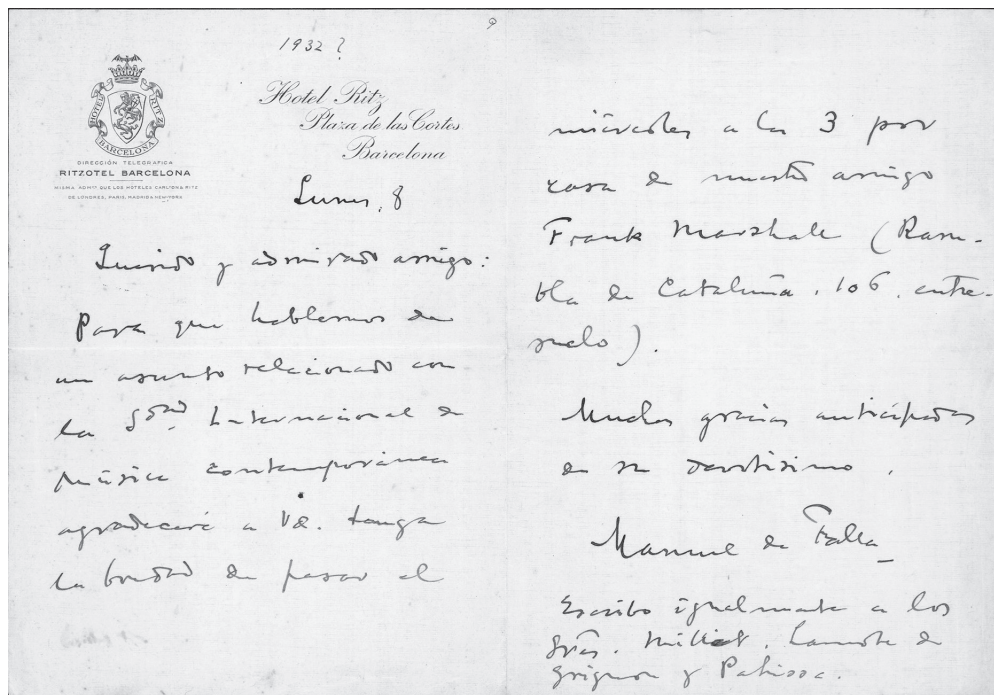 1932?
9
HOTEL RITZ
BARCELONA
DIRECCIÓN TELEGRÁFICA
RITZOTEL BARCELONA
MISMA ADMON QUE LOS HOTELES CARLTON & RITZ
DE LONDRES, PARIS, MADRID & NEW-YORK
Hotel Ritz
Plaza de las Cortes
Barcelona
Lunes, 8
Querido y admirado amigo:
Para que hablemos de
un asunto relacionado con
la Sdad. Internacional de
Música contemporánea
agradeceré a Vd. tenga
la bondad de pasar el
miércoles a las 3 por
casa de nuestro amigo
Frank Marshall (Ram-
bla de Cataluña, 106, entre-
suelo).
Muchas gracias anticipadas
de su devotísimo,
Manuel de Falla
Escribo igualmente a los
Sres. Millet, Lamote de
Grignon y Pahissa.